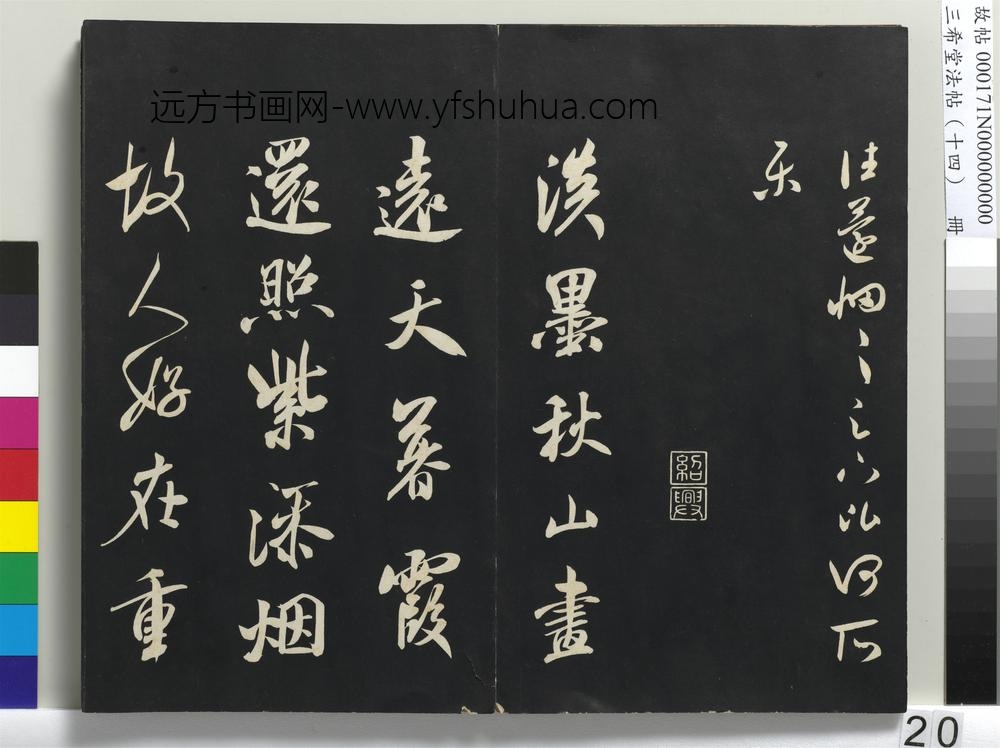 故帖 000171N000000000
三希堂法帖(十四) 册
远方书画网-www.yfshuhua.com
何所
樂
紹興
淡墨秋山畫
遠天暮霞
還照紫添烟
故人好在重
20